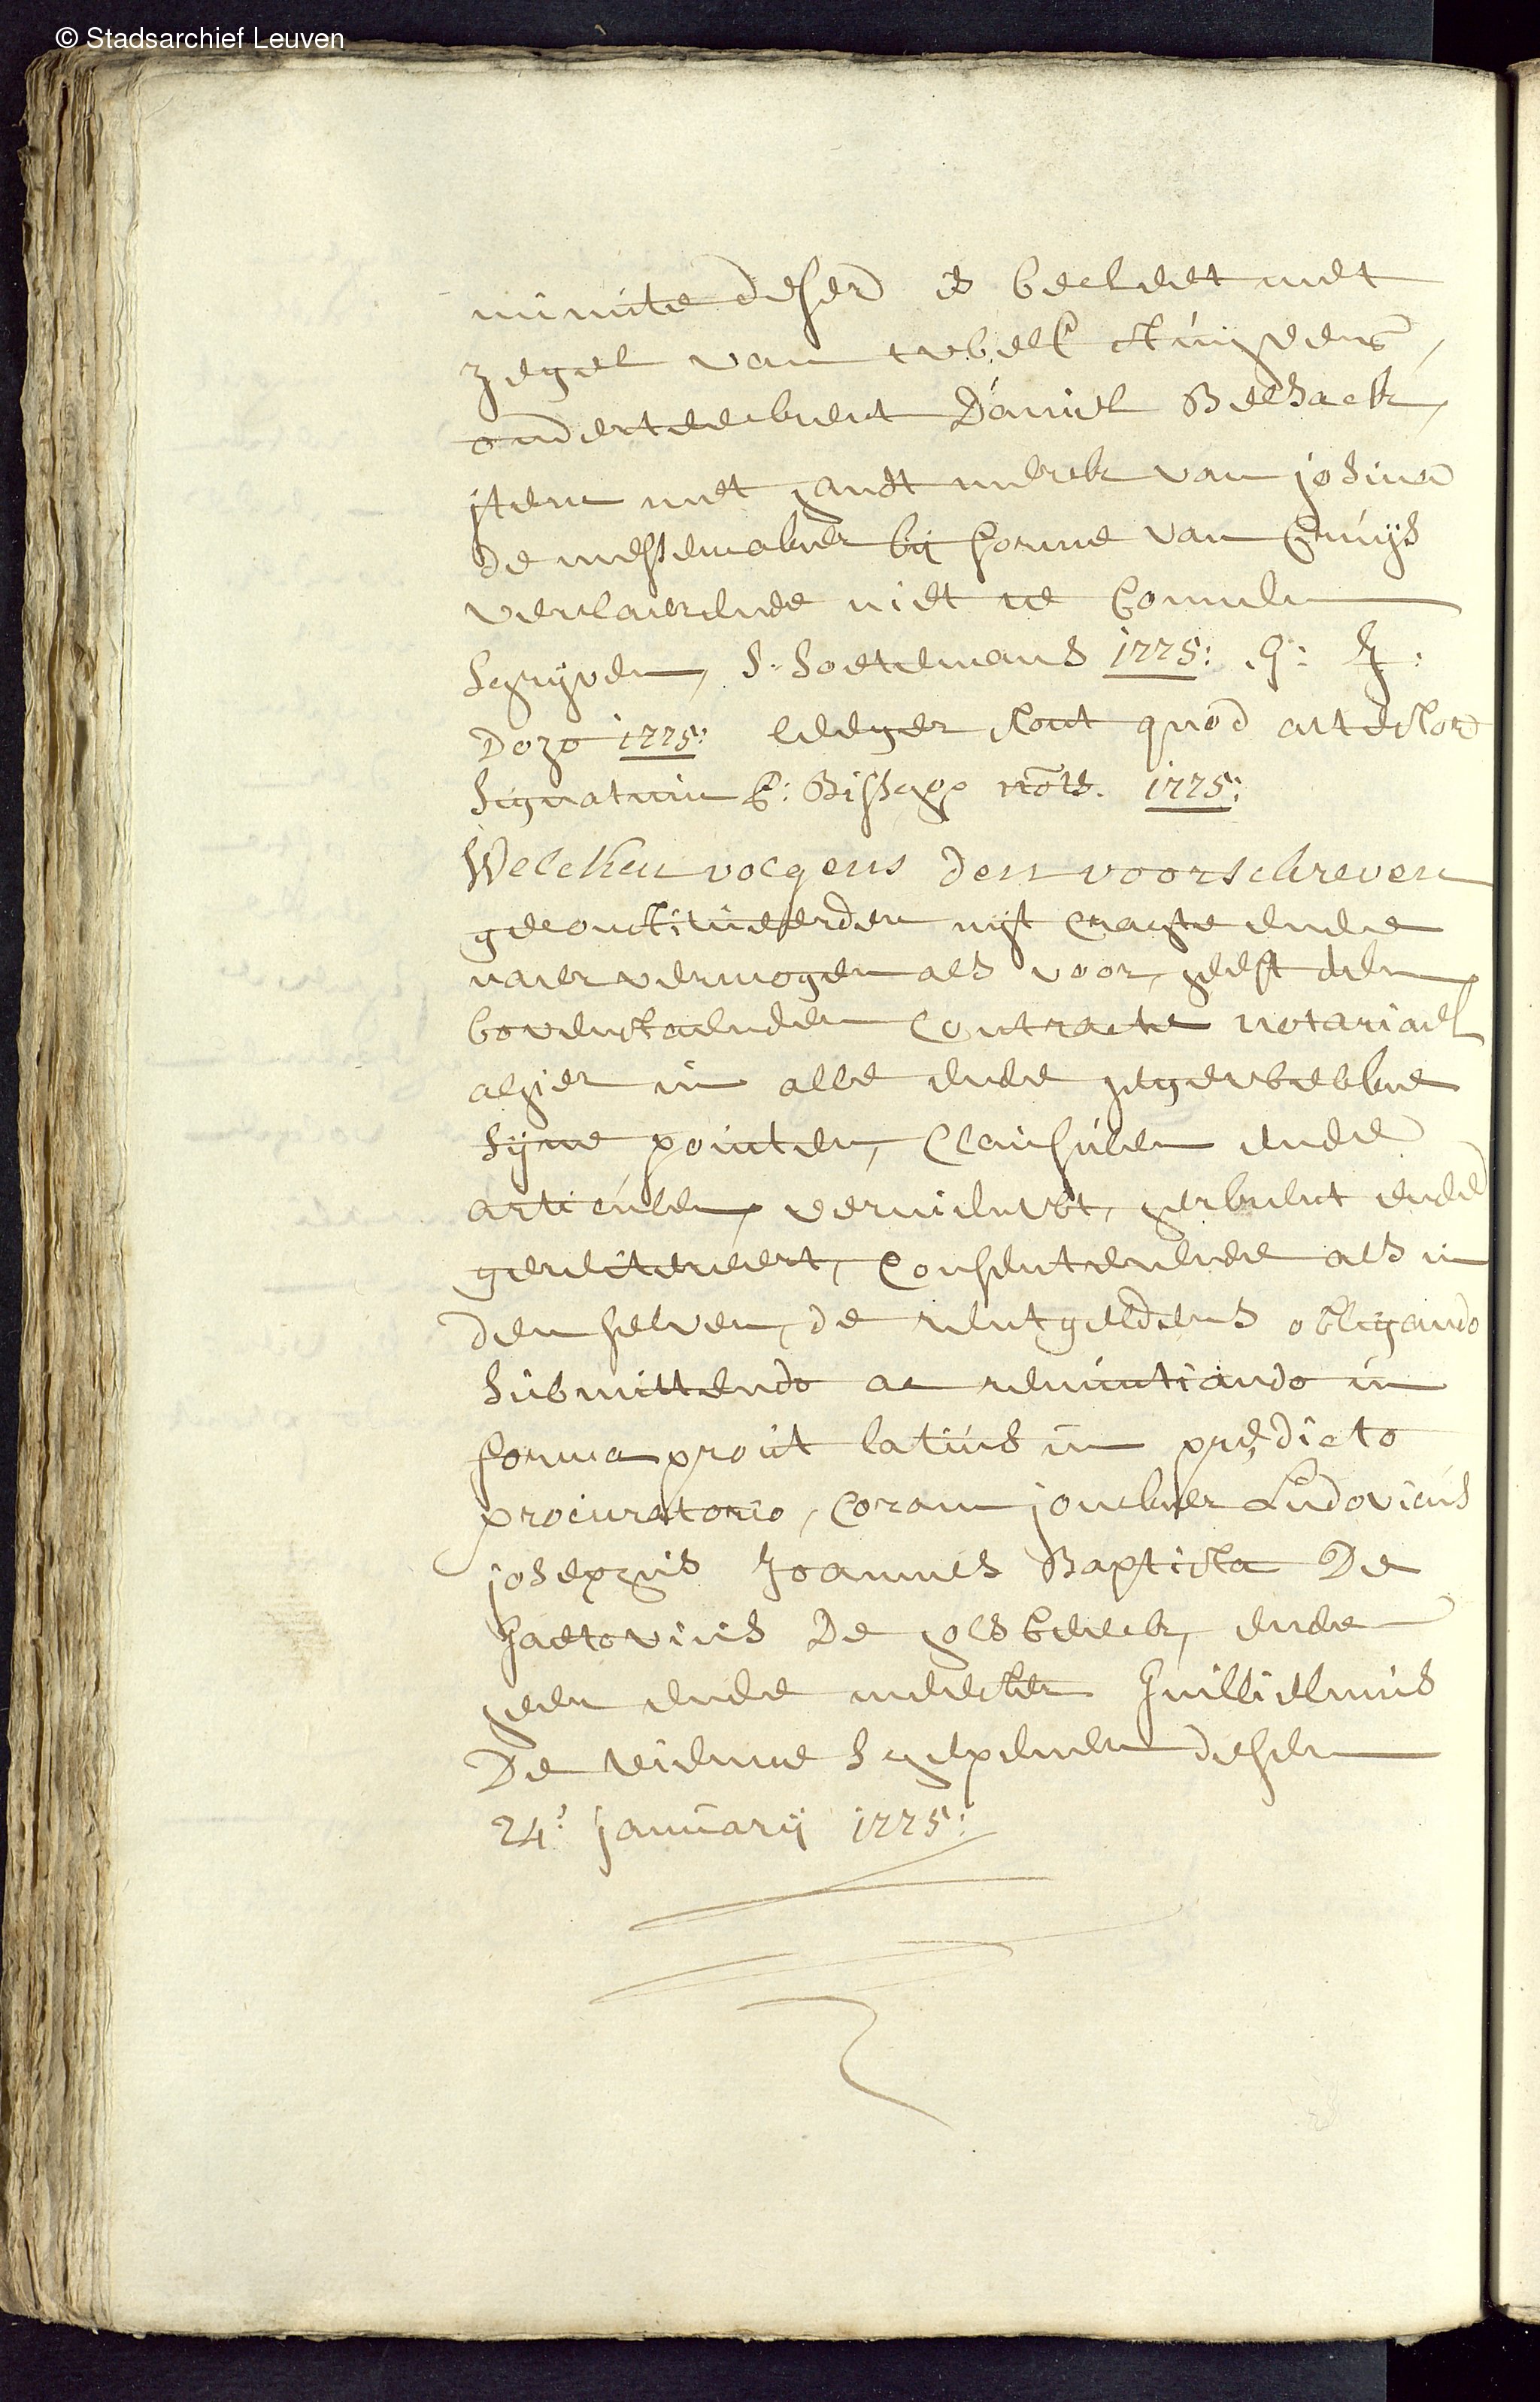 © Stadsarchief Leuven
minute deser is becleet met
zegel van twelf stuyvers,
onderteeckent Daniel Belsack,
item met handt merck van josina
de messemaker bij forme van cruijs
verclaerende niet te connen
schrijven, S. Soetemans 1775: G: J:
Dozo 1775: leeger stont quod attestor
signatum C: Bisschop nots. 1775:
Welcken volgens den voorschreven
geconstitueerden uijt crachte ende
naer vermogen als voor, heeft den
bovenstaenden contracte notariael
alhier in alle ende jegewelcke
sijne pointen, clausulen ende
articulen, vernieuwt, herkent ende
gereitereert, consenterende als in
den selven, de rentgelders obligando
submittendo ac renuntiando in
forma prout latius in prędicto
procuratorio, coram joncker Ludovicus
josephus Joannes Baptista De
Hactovius De holsbeeck, ende
heer ende meester Guillielmus
De Vienne schepenen desen
24: januarij 1775: